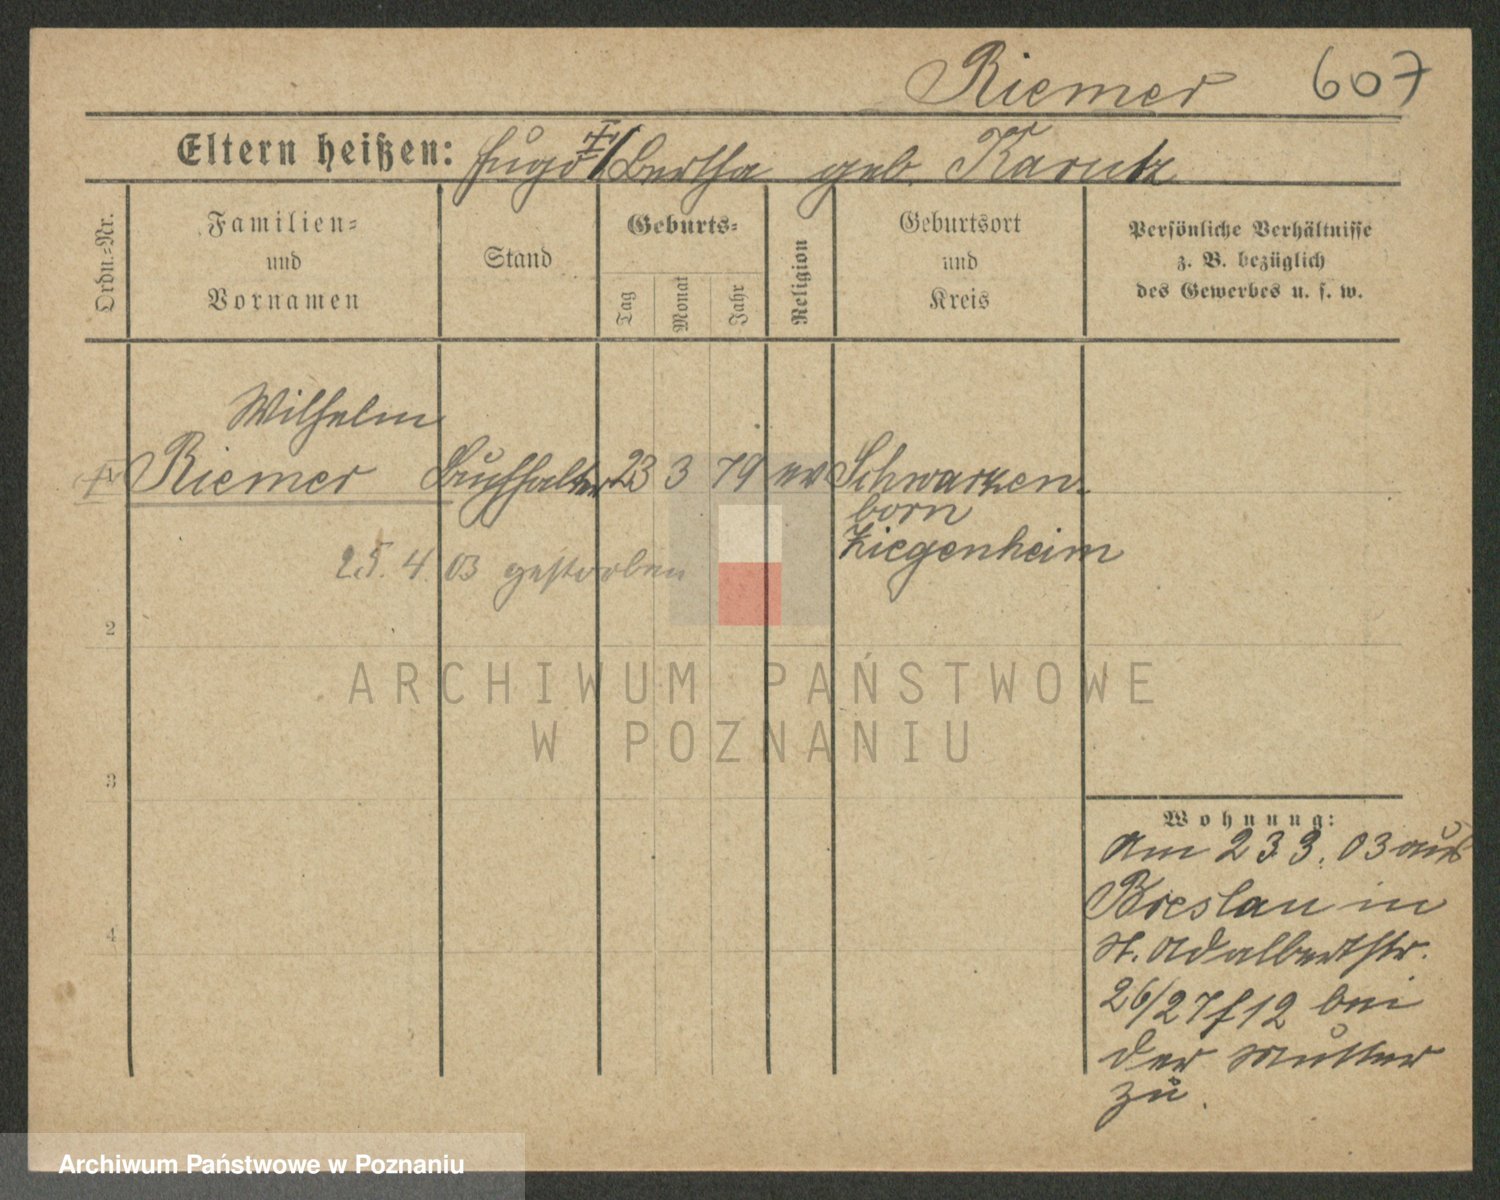 Riemer 607
Eltern heißen: Hugo † / Bertha geb. Karutz
Ordn.-Nr.
Familien-
und
Vornamen
Stand
Geburts-
Tag
Monat
Jahr
Religion
Geburtsort
und
Kreis
Persönliche Verhältnisse
z. B. bezüglich
des Gewerbes u. s. w.
Wilhelm
Riemer Buchhalter 23 3 79 ev Schwarzen-
born
Ziegenheim
25. 4. 03 gestorben
2
ARCHIWUM PAŃSTWOWE
W POZNANIU
3
Wohnung:
Am 23 3. 03 aus
Breslau in
St. Adalbertstr.
26/27 f 12 bei
der Mutter
zu.
4
Archiwum Państwowe w Poznaniu